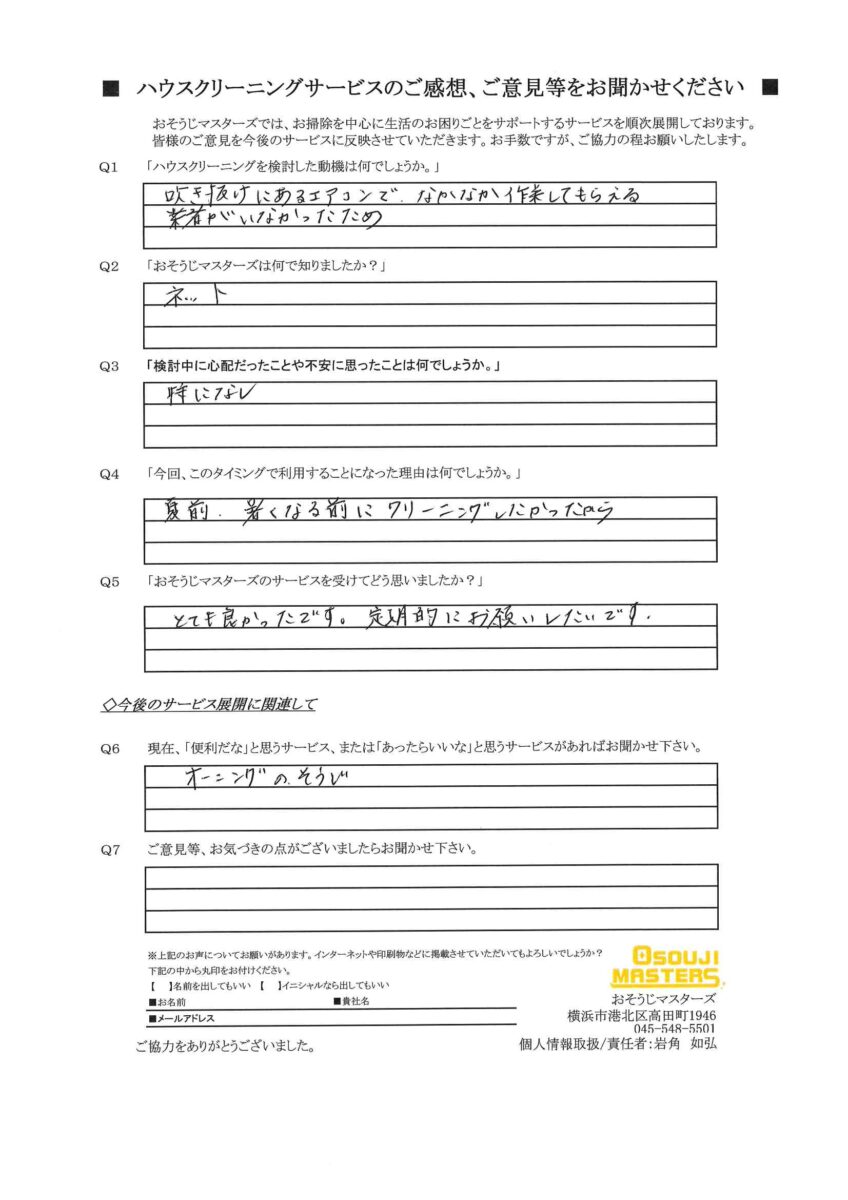 ■ ハウスクリーニングサービスのご感想、ご意見等をお聞かせください ■
おそうじマスターズでは、お掃除を中心に生活のお困りごとをサポートするサービスを順次展開しております。
皆様のご意見を今後のサービスに反映させていただきます。お手数ですが、ご協力の程お願いしたします。
Q1 「ハウスクリーニングを検討した動機は何でしょうか。」
吹き抜けにあるエアコンで、なかなか作業してもらえる
業者がいなかったため
Q2 「おそうじマスターズは何で知りましたか？」
ネット
Q3 「検討中に心配だったことや不安に思ったことは何でしょうか。」
特になし
Q4 「今回、このタイミングで利用することになった理由は何でしょうか。」
夏前、暑くなる前にクリーニングしたかったから
Q5 「おそうじマスターズのサービスを受けてどう思いましたか？」
とても良かったです。定期的にお願いしたいです.
◇今後のサービス展開に関連して
Q6 現在、「便利だな」と思うサービス、または「あったらいいな」と思うサービスがあればお聞かせ下さい。
オーニングのそうじ
Q7 ご意見等、お気づきの点がございましたらお聞かせ下さい。
※上記のお声についてお願いがあります。インターネットや印刷物などに掲載させていただいてもよろしいでしょうか？
下記の中から丸印をお付けください。
【 】名前を出してもいい 【 】イニシャルなら出してもいい
■お名前 ■貴社名
■メールアドレス
ご協力をありがとうございました。
OSOUJI
MASTERS.
おそうじマスターズ
横浜市港北区高田町1946
045-548-5501
個人情報取扱/責任者：岩角 如弘